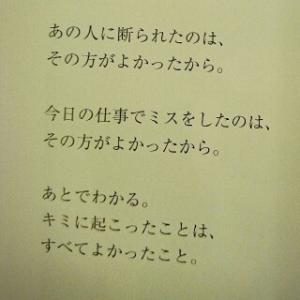 あの人に断られたのは、
その方がよかったから。
今日の仕事でミスをしたのは、
その方がよかったから。
あとでわかる。
キミに起こったことは、
すべてよかったこと。